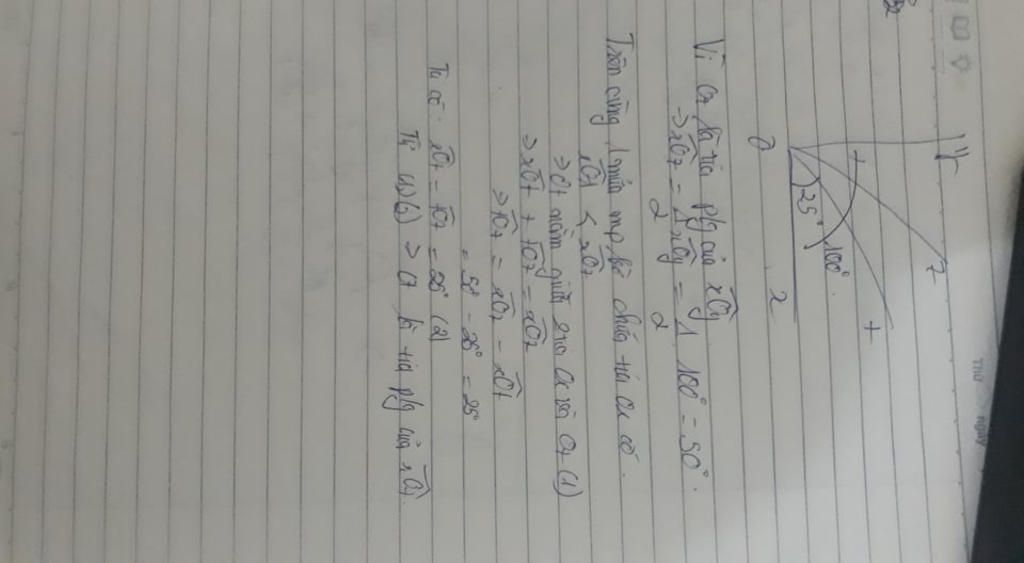 THỨ NGÀY
y
z
t
25° 100°
O x
Vì Oz là tia p/g của xOy
=> xOz = 1/2 xOy = 1/2 100° = 50°.
Trên cùng 1 nửa mp bờ chứa tia Ox có.
xOt < xOz
=> Ot nằm giữa Ox và Oz (1)
=> xOt + tOz = xOz
=> tOz = xOz - xOt
= 50° - 25° = 25°
Ta có: xOt = tOz = 25° (2)
Từ (1)(2) => Ot là tia p/g của